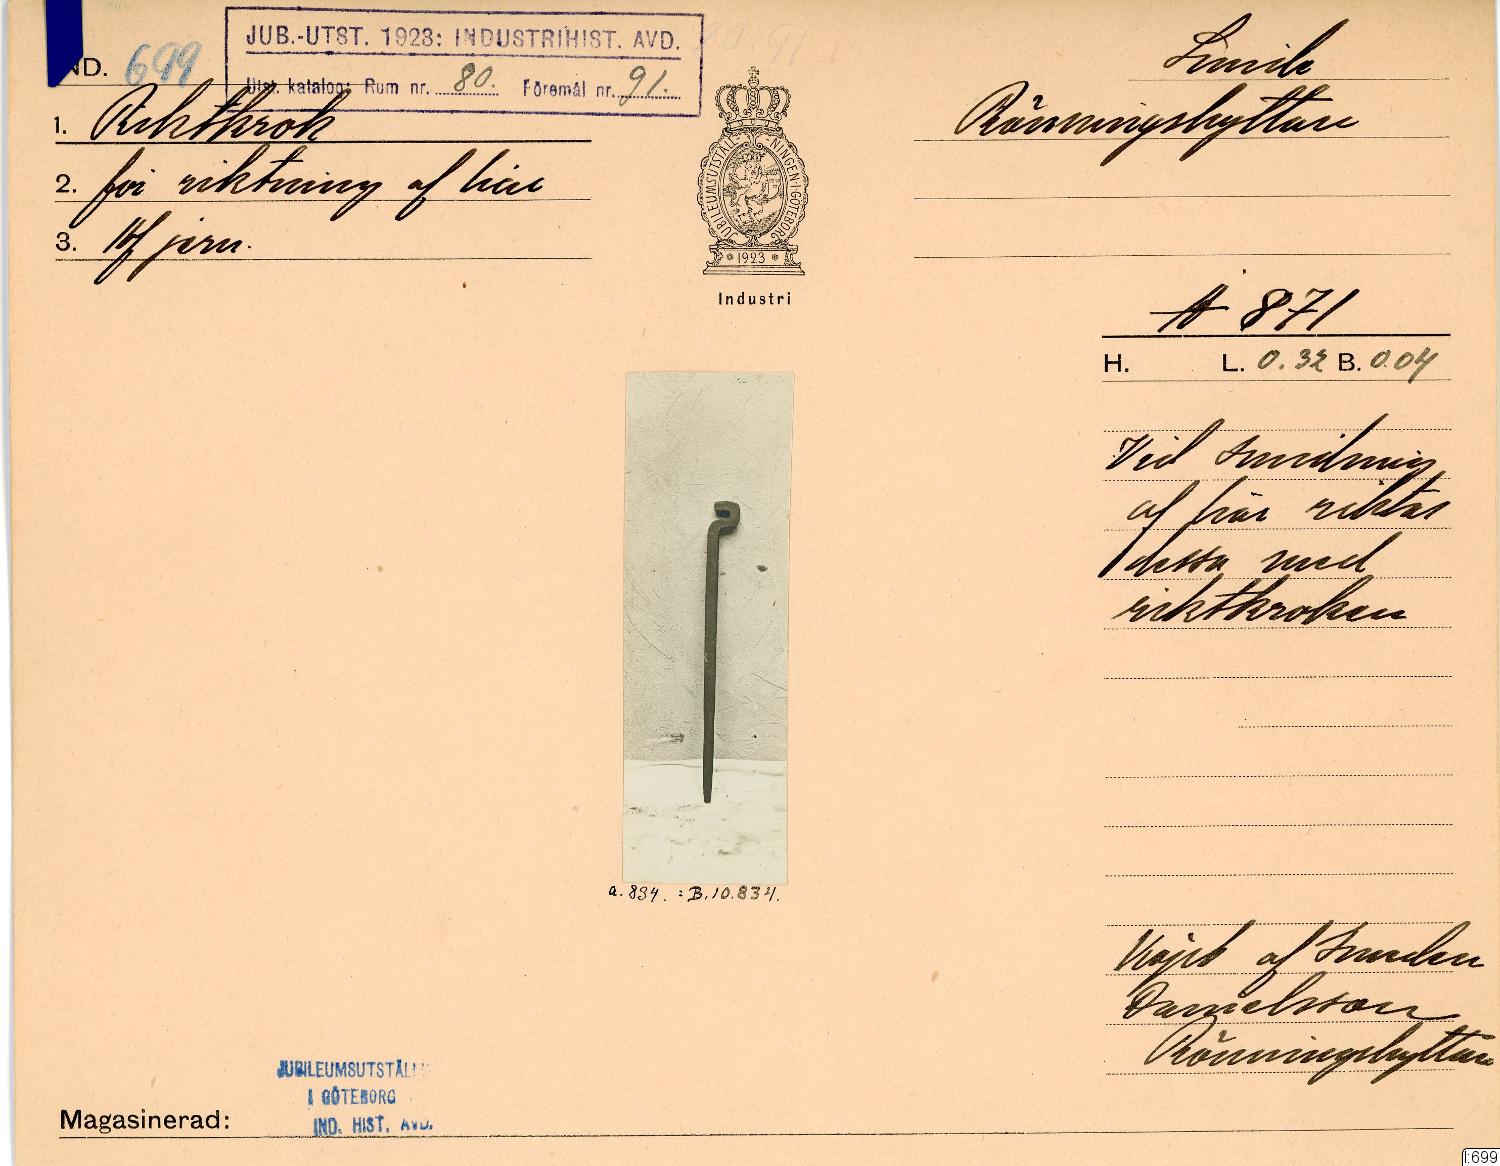 ND. 699
JUB.-UTST. 1923: INDUSTRIHIST. AVD.
Utst. katalog: Rum nr. 80. Föremål nr. 91.
1. Riktkrok
2. för riktning af liar
3. Af järn.
JUBILEUMSUTSTÄLLNINGEN I GÖTEBORG
* 1923 *
Industri
Smide
Rönningshyttan
A 871
H. L. 0.32 B. 0.04
Vid smidning
af liar riktas
dessa med
riktkroken
a. 834. : B. 10.834.
Köpt af Smeden
Danielsson
Rönningshyttan
JUBILEUMSUTSTÄLL
I GÖTEBORG
IND. HIST. AVD.
Magasinerad:
I:699